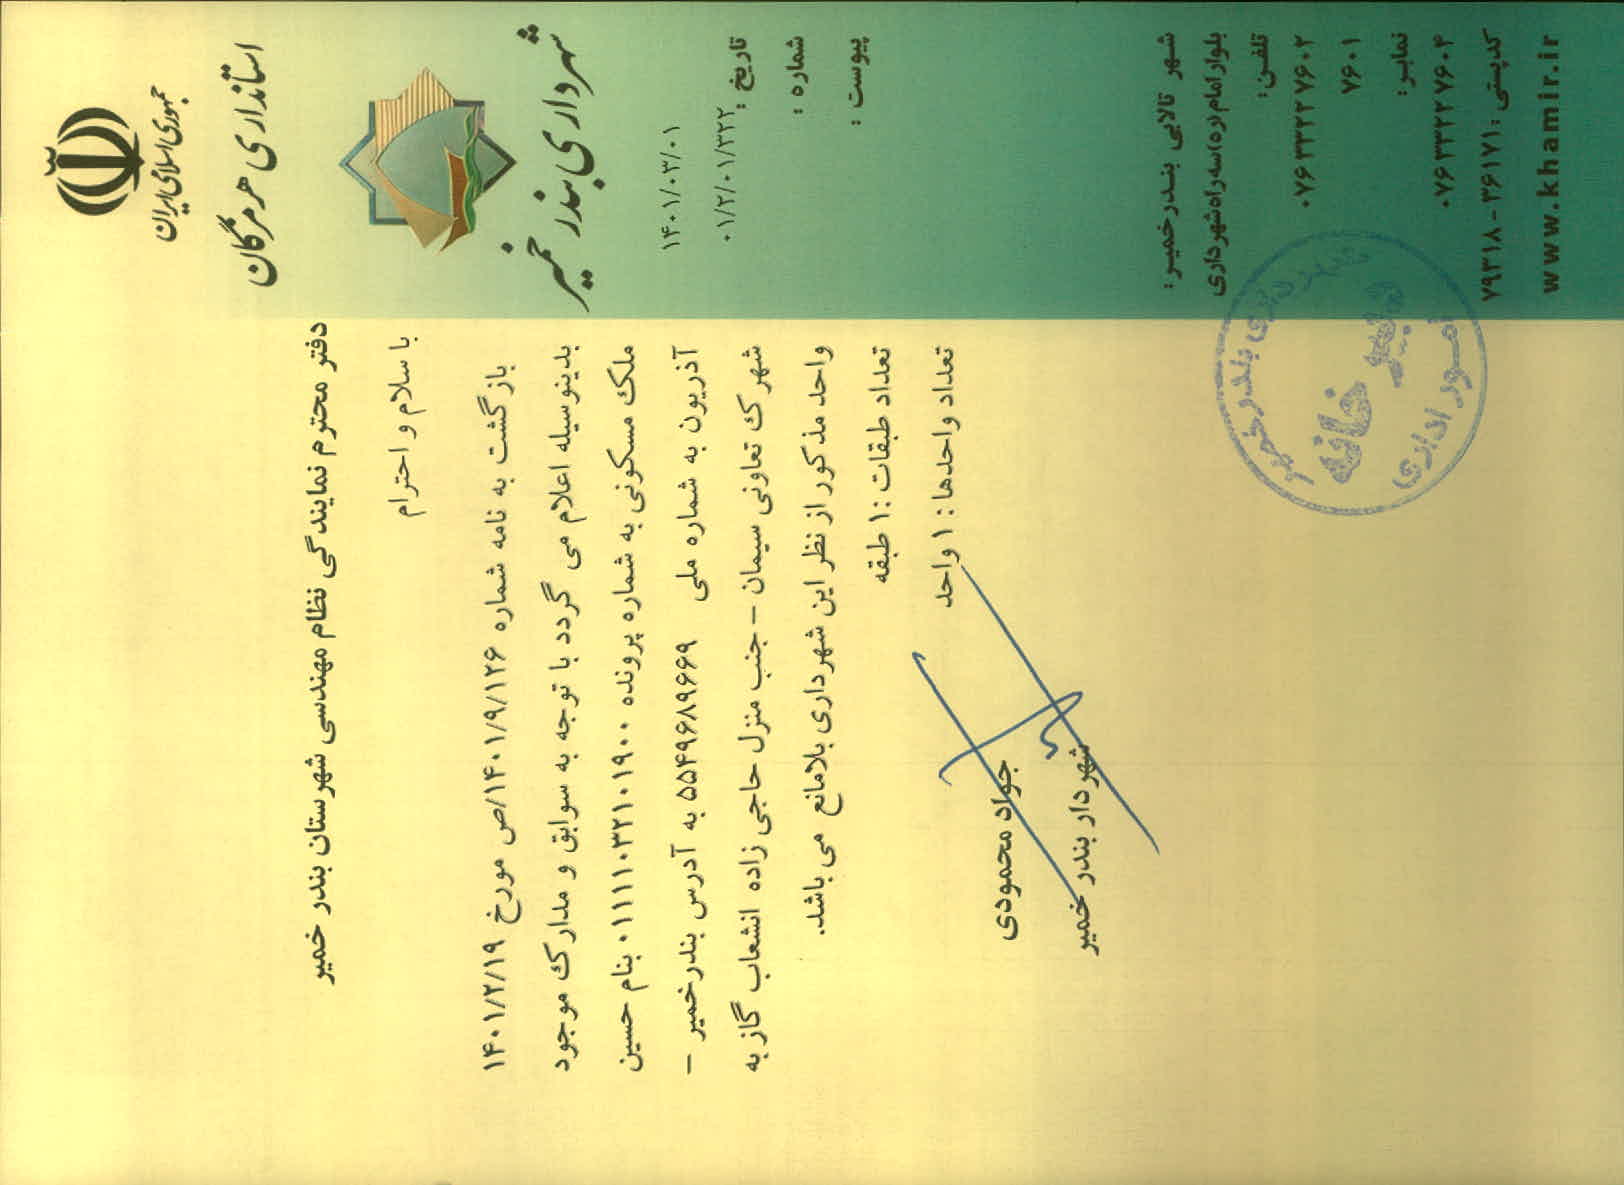 جمهوری اسلامی ایران
استانداری هرمزگان
شهرداری بندر خمیر
۱۴۰۱/۰۳/۰۱
تاریخ :
۰۱/۲/۰۱/۳۲۲
شماره :
پیوست :
دفتر محترم نمایندگی نظام مهندسی شهرستان بندر خمیر
با سلام و احترام
بازگشت به نامه شماره ۱۴۰۱/۹/۱۲۶/ص مورخ ۱۴۰۱/۲/۱۹
بدینوسیله اعلام می گردد با توجه به سوابق و مدارک موجود
ملک مسکونی به شماره پرونده ۰۱۱۱۱۰۳۲۱۰۱۹۰۰ بنام حسین
آذریون به شماره ملی ۵۵۴۹۶۸۹۶۶۹ به آدرس بندرخمیر –
شهرک تعاونی سیمان – جنب منزل حاجی زاده انشعاب گاز به
واحد مذکور از نظر این شهرداری بلامانع می باشد.
تعداد طبقات :۱ طبقه
تعداد واحدها : ۱ واحد
جواد محمودی
شهردار بندر خمیر
شهر تالابی بندرخمیر:
بلوار امام(ره)سه راه شهرداری
تلفن:
۰۷۶۳۳۲۲۷۶۰۲
۷۶۰۱
نمابر:
۰۷۶۳۳۲۲۷۶۰۴
کدپستی: ۴۶۱۷۱ - ۷۹۳۱۸
www.khamir.ir
شهرداری بندر خمیر
دبیر خانه
امور اداری